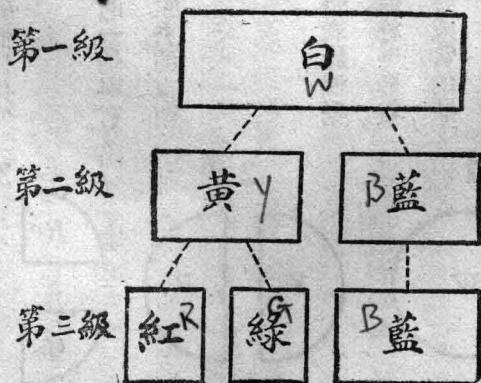 第一級 白 W
第二級 黄 y B 藍
第三級 紅 R 綠 G B 藍